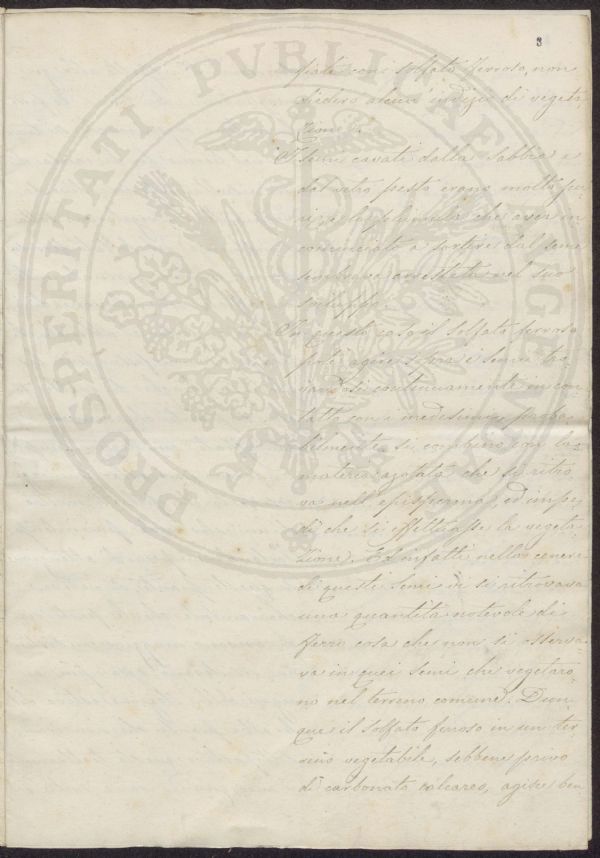 3
fiale con i solfato ferroso, non
diedero alcuni indizi di vegeta
zione.
I semi cavati dalla sabbia e
dal vetro pesto erano molto
e la plumula che aver in
cominciato a sortire dal seme
arrestata nel suo
sviluppo.
In questo caso il solfato ferroso
potè agire sopra i semi tro
vandosi continuamente in con
tatto con i medesimi, proba
bilmente si combinò con la
materia azotata che si ritro
va nell'episperma, ed impe
dì che si effettuasse la vegeta
zione. Ed infatti nella cenere
di questi semi vi si ritrovava
una quantità notevole di
ferro cosa che non si osserva
va in quei semi che vegetaro
no nel terreno comune. Dun
que il solfato ferroso in un ter
reno vegetabile, sebbene privo
di carbonato calcareo, agisce ben
PROSPERITATI PVBLICAE AVGENDAE